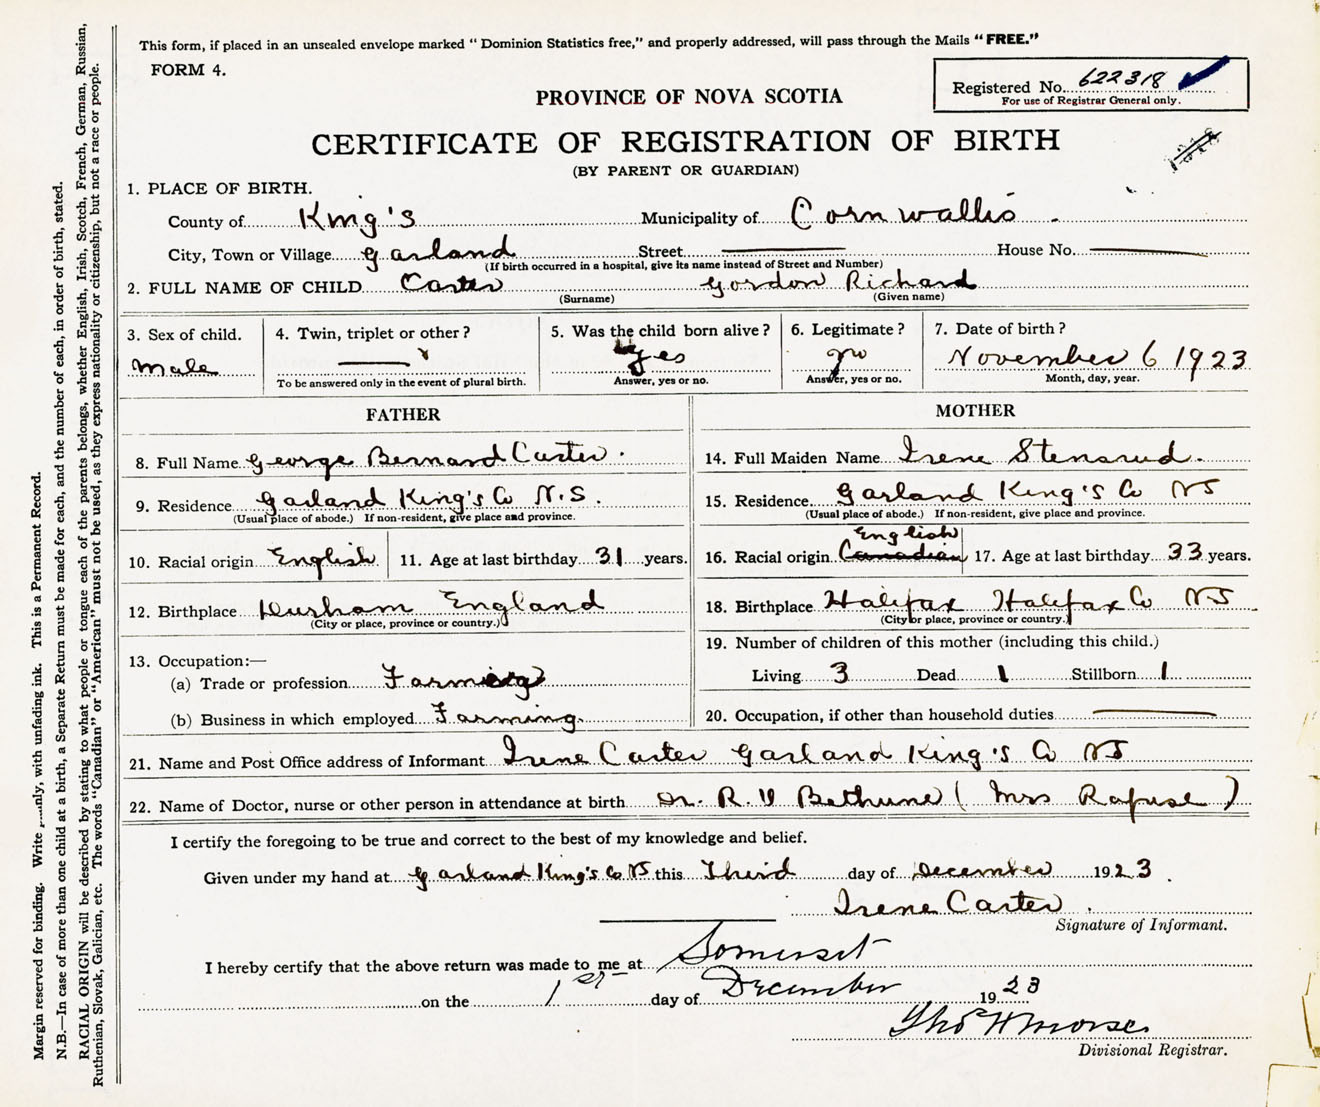 This form, if placed in an unsealed envelope marked " Dominion Statistics free," and properly addressed, will pass through the Mails " FREE."
FORM 4.
Registered No. 622318
For use of Registrar General only.
PROVINCE OF NOVA SCOTIA
CERTIFICATE OF REGISTRATION OF BIRTH
(BY PARENT OR GUARDIAN)
1. PLACE OF BIRTH.
County of King's Municipality of Cornwallis
City, Town or Village Garland Street House No.
(If birth occurred in a hospital, give its name instead of Street and Number)
2. FULL NAME OF CHILD Carter Gordon Richard
(Surname) (Given name)
3. Sex of child. 4. Twin, triplet or other ? 5. Was the child born alive ? 6. Legitimate ? 7. Date of birth ?
Male yes November 6 1923
To be answered only in the event of plural birth. Answer, yes or no. Answer, yes or no. Month, day, year.
FATHER MOTHER
8. Full Name George Bernard Carter. 14. Full Maiden Name Irene Stensrud.
9. Residence Garland King's Co N.S. 15. Residence Garland King's Co NS
(Usual place of abode.) If non-resident, give place and province. (Usual place of abode.) If non-resident, give place and province.
English
10. Racial origin English 11. Age at last birthday 31 years. 16. Racial origin Canadian 17. Age at last birthday 33 years.
12. Birthplace Durham England 18. Birthplace Halifax Halifax Co NS
(City or place, province or country.) (City or place, province or country.)
19. Number of children of this mother (including this child.)
13. Occupation:—
(a) Trade or profession Farming Living 3 Dead 1 Stillborn 1
(b) Business in which employed Farming. 20. Occupation, if other than household duties
21. Name and Post Office address of Informant Irene Carter Garland King's Co NS
22. Name of Doctor, nurse or other person in attendance at birth Dr. R. V Bethune ( Mrs Rafuse )
I certify the foregoing to be true and correct to the best of my knowledge and belief.
Given under my hand at Garland King's Co NS this Third day of December 1923.
Irene Carter.
Signature of Informant.
I hereby certify that the above return was made to me at Somerset
on the 1st day of December 1923
Thos H Morse
Divisional Registrar.
Margin reserved for binding. Write with unfading ink. This is a Permanent Record.
N.B.—In case of more than one child at a birth, a Separate Return must be made for each, and the number of each, in order of birth, stated.
RACIAL ORIGIN will be described by stating to what people or tongue each of the parents belongs, whether English, Irish, Scotch, French, German, Russian,
Ruthenian, Slovak, Galician, etc. The words "Canadian" or "American" must not be used, as they express nationality or citizenship, but not a race or people.